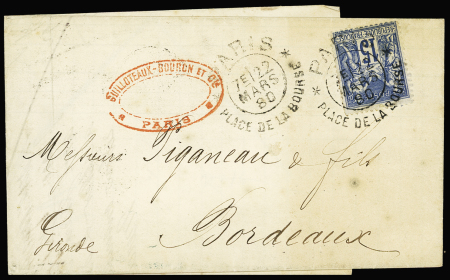 GUILLOTEAUX-BOURON ET CIE
PARIS
PARIS
7E/22
MARS
80
PLACE DE LA BOURSE
PARIS
MARS
80
PLACE DE LA BOURSE
15
Messieurs Piganeau & fils
Bordeaux
Gironde